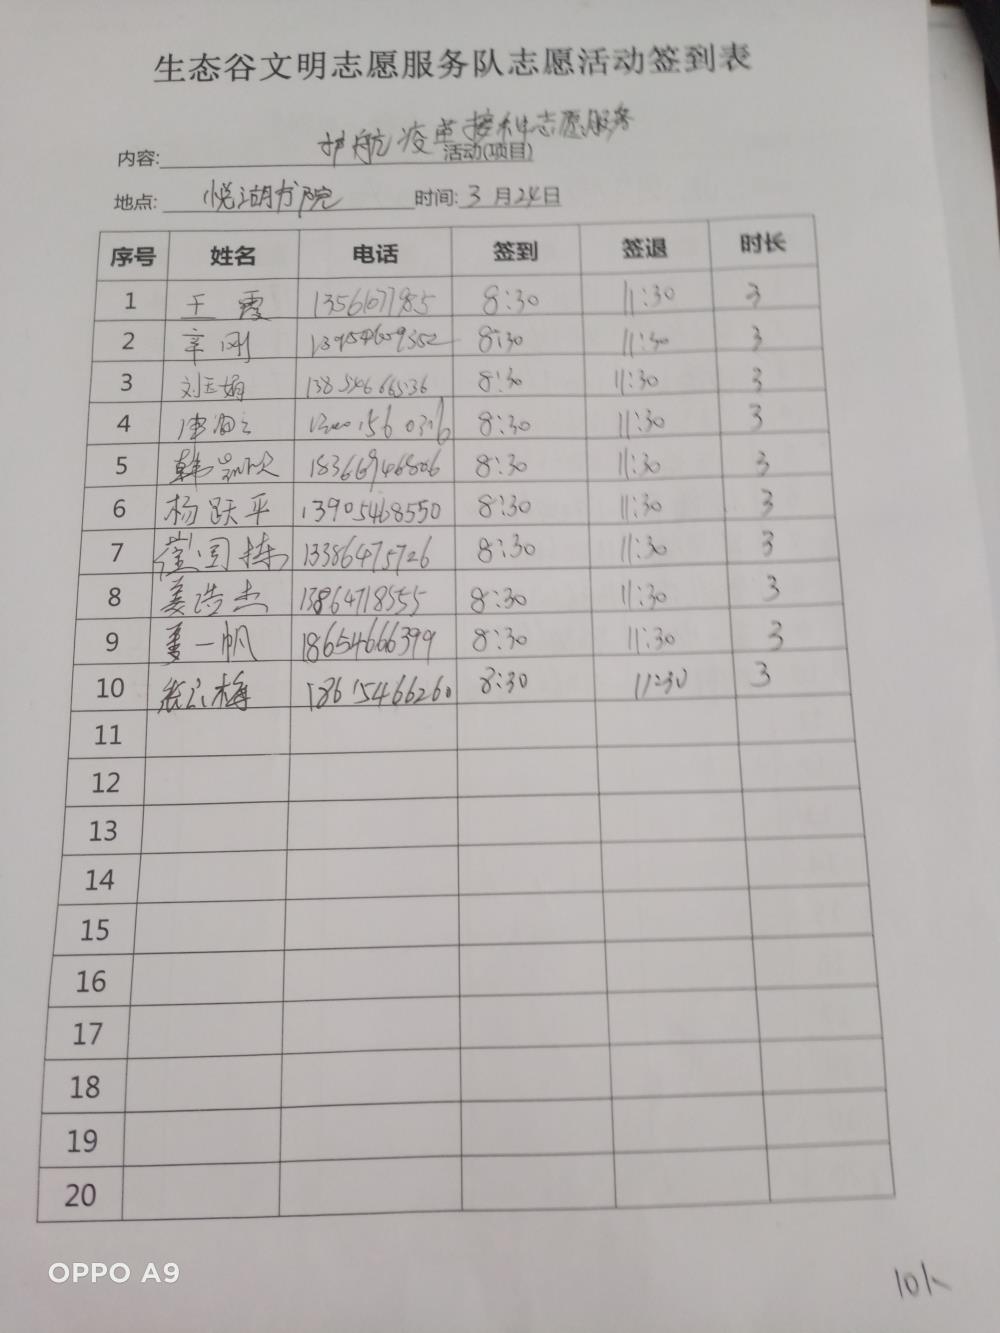 生态谷文明志愿服务队志愿活动签到表
内容: 护航疫苗接种志愿服务 活动(项目)
地点: 悦湖书院 时间: 3 月 24 日
序号 姓名 电话 签到 签退 时长
1 王霞 8:30 11:30 3
2 辛刚 13954609352 8:30 11:30 3
3 刘玉娟 13854666536 8:30 11:30 3
4 8:30 11:30 3
5 韩 18366946806 8:30 11:30 3
6 杨跃平 13905468550 8:30 11:30 3
7 13386475726 8:30 11:30 3
8 姜浩杰 13864718555 8:30 11:30 3
9 姜一帆 18654666399 8:30 11:30 3
10 梅 18615466260 8:30 11:30 3
11
12
13
14
15
16
17
18
19
20
10人
OPPO A9